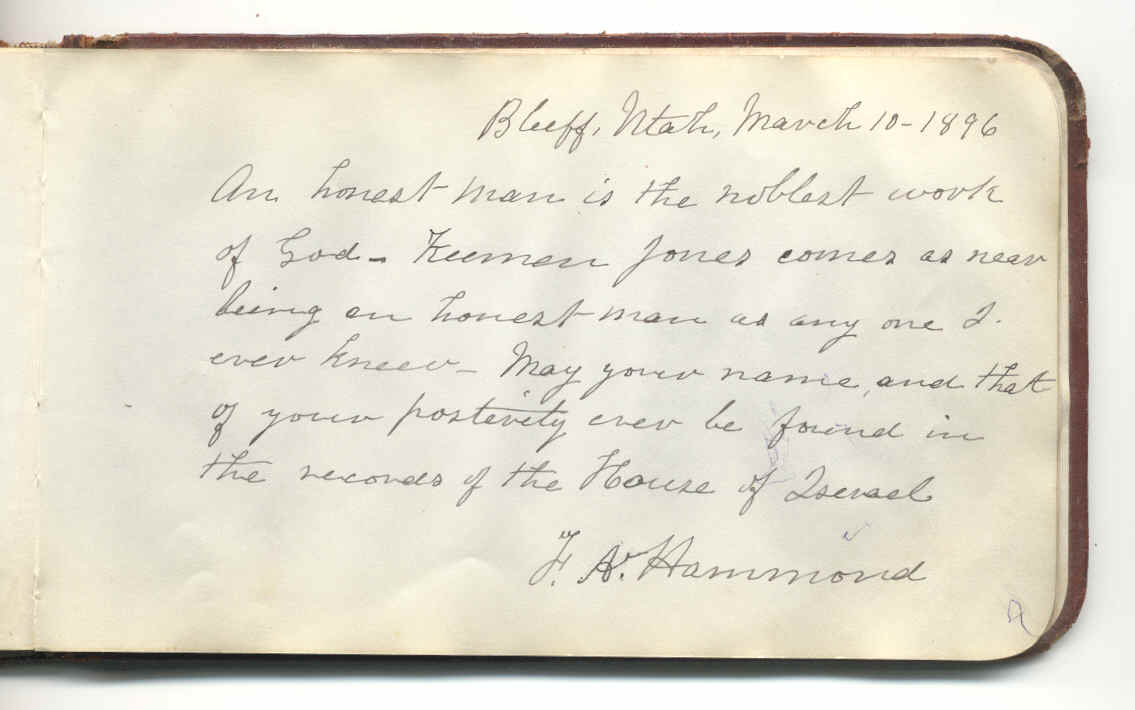 Bluff, Utah, March 10-1896
An honest man is the noblest work
of God - Kumen Jones comes as near
being an honest man as any one I.
ever knew - May your name, and that
of your posterity ever be found in
the records of the House of Iserael
F. A. Hammond